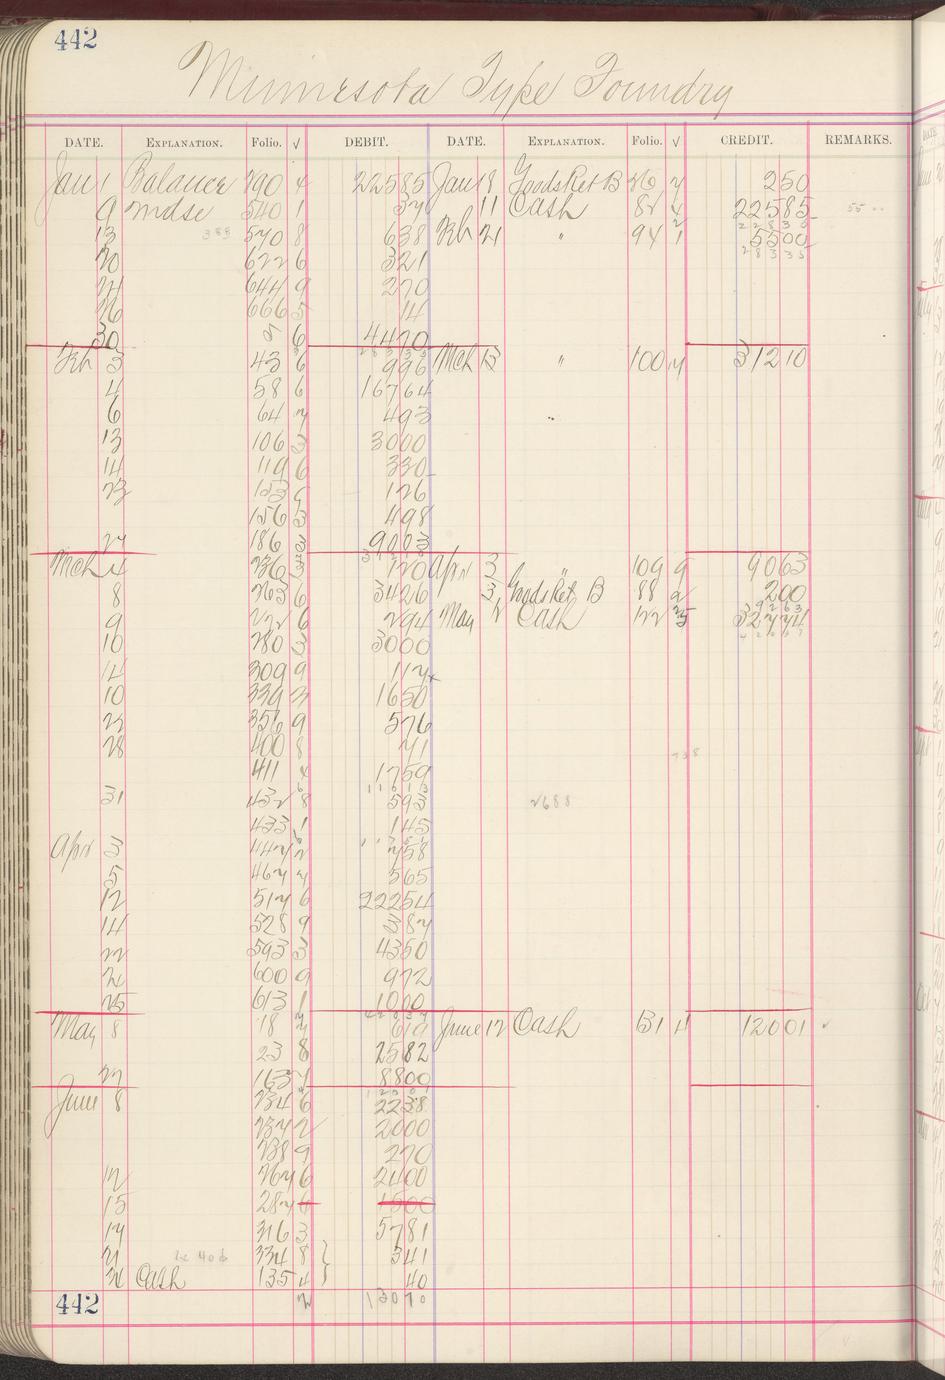 442
Minnesota Type Foundry
DATE. EXPLANATION. Folio. √ DEBIT. DATE. EXPLANATION. Folio. √ CREDIT. REMARKS.
Jan 1 Balance 790 4 22585 Jan 18 Goods Ret B 86 7 250
9 Mdse 540 1 37 11 Cash 82 4 22585
22830
13 388 570 8 638 Feb 21 " 94 1 5500
28335
20 622 6 321
24 644 9 270
26 666 5 14
30 5 6 4470
28335
Feb 3 43 6 996 Mch 13 " 100 7 31210
4 58 6 16764
6 64 7 493
13 106 3 3000
14 119 6 330
23 126
156 3 498
27 186 2 9003
Mch 4 236 3 120 Apr 3 " 109 9 9063
8 263 6 3426 3 Goods Ret B 88 2 200
9263
9 272 6 294 May 2 Cash 122 5 32774
10 280 3 3000
14 309 9 117
10 339 7 1650
22 356 9 576
28 400 8 71
738
411 4 1759
31 432 8 593 2688
433 1 145
Apr 3 447 2 758
5 467 7 565
12 517 6 22254
14 528 9 387
22 593 3 4350
24 600 9 972
25 613 1 1000
May 8 18 7 619 June 12 Cash 131 4 12001
23 8 2582
27 163 7 8800
12001
June 8 234 6 2238
237 2 2000
238 9 270
12 267 6 2400
15 287 6 1500
17 316 3 5781
21 334 8 341
24 Cash 135 4 40
442 2 13070